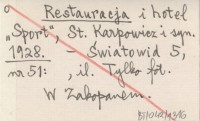 Restauracja i hotel
„Sport", St. Karpowicz i syn.
1928. – Światowid 5,
nr 51: , il. Tylko fot.
W Zakopanem.